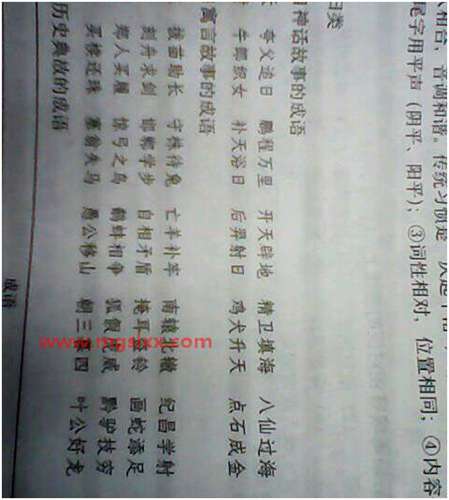 相合，音调和谐。传统习惯是
尾字用平声（阴平、阳平）；③词性相对，位置相同；④内容
归类
神话故事的成语
夸父追日 鹏程万里 开天辟地 精卫填海 八仙过海
牛郎织女 补天浴日 后羿射日 鸡犬升天 点石成金
寓言故事的成语
拔苗助长 守株待兔 亡羊补牢 南辕北辙 纪昌学射
刻舟求剑 邯郸学步 自相矛盾 掩耳盗铃 画蛇添足
郑人买履 惊弓之鸟 鹬蚌相争 狐假虎威 黔驴技穷
买椟还珠 塞翁失马 愚公移山 朝三暮四 叶公好龙
历史典故的成语
成语
www.mgsxx.com